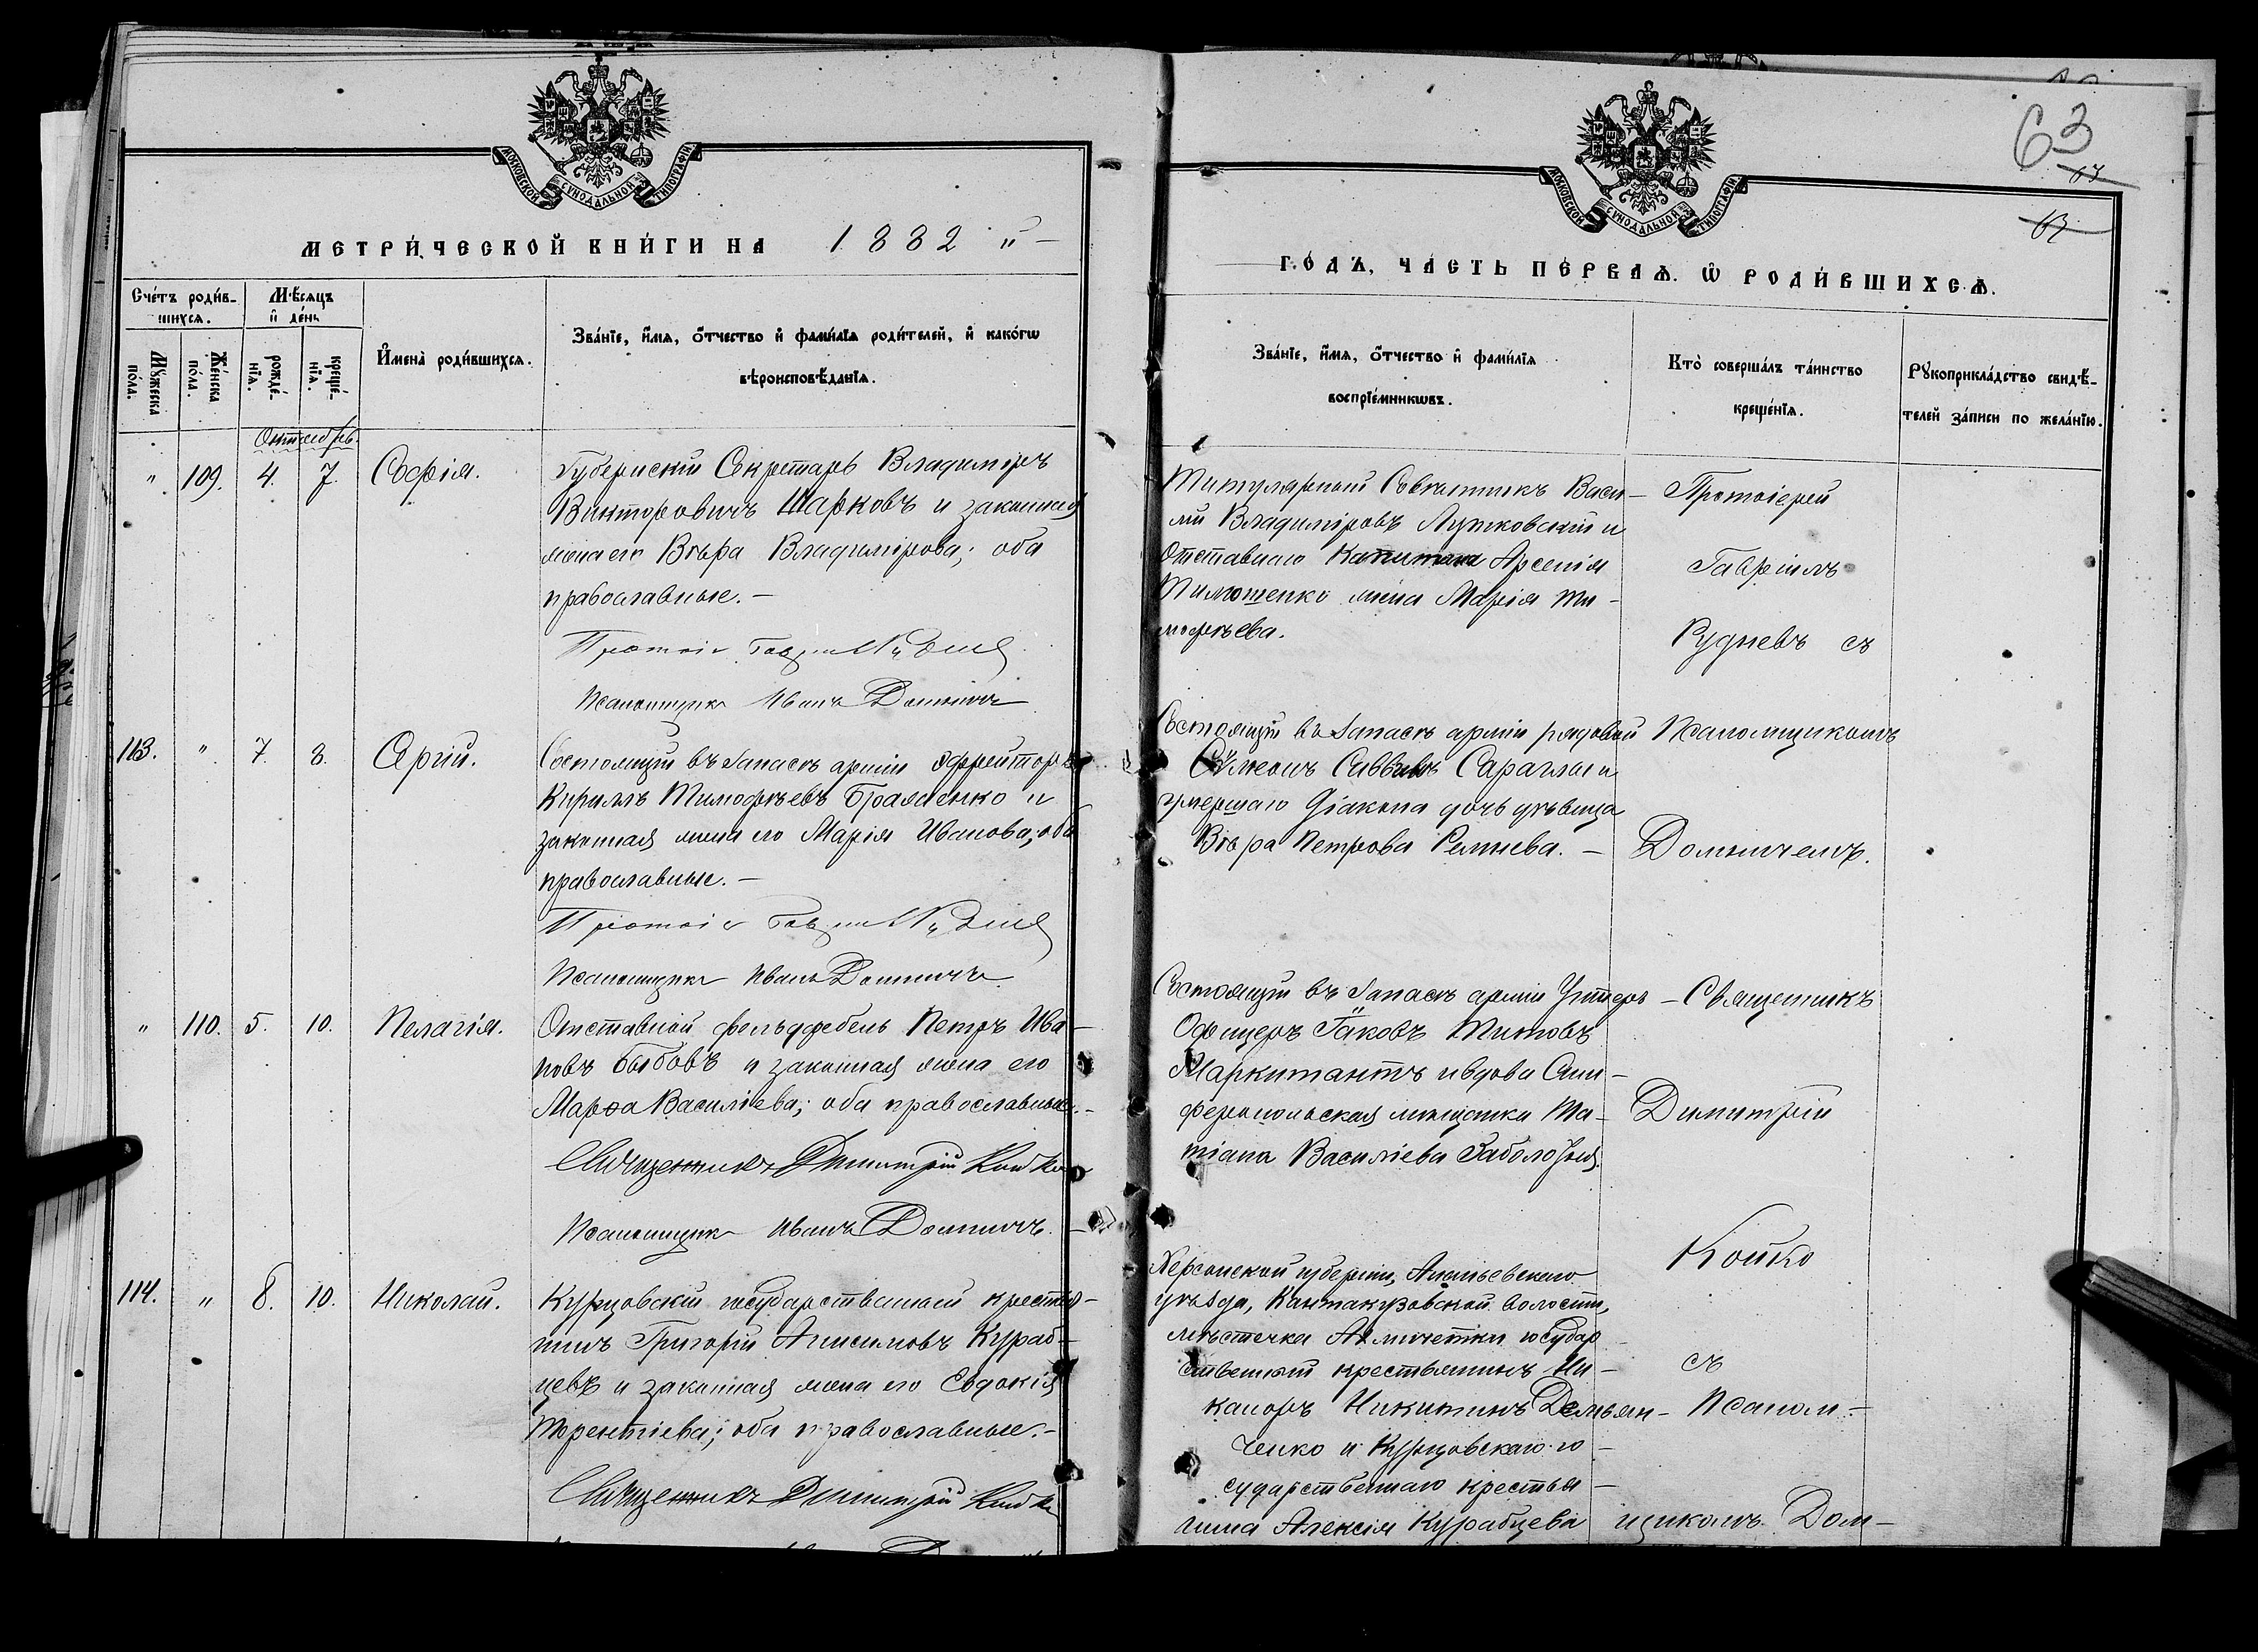 МОСКОВСКОЙ СѴНОДАЛЬНОЙ ТИПОГРАФІИ
МЕТРИ́ЧЕСКОЙ КНИ́ГИ НА 1882 "-
Сче́тъ роди́в-
шихся.
Мѣсяцъ
и҆ де́нь
Мꙋ́жеска
по́ла.
Же́нска
по́ла.
рожде́-
нїѧ.
креще́-
нїѧ.
И҆мена̀ роди́вшихся.
Зва́нїе, и҆́мѧ, ѻ҆́тчество и҆ фами́лїѧ роди́телей, и҆ како́гѡ
вѣроисповѣ́данїѧ.
Октябрь.
" 109. 4. 7. Софія.
Губернскій Секретарь Владиміръ
Викторовичъ Шарковъ и законная
жена его Вѣра Владимірова; оба
православные. –
Псаломщикъ Иванъ Домничъ
113. " 7. 8. Сергій.
Состоящій въ запасѣ арміи Ефрейторъ
Кириллъ Тимофѣевъ и
законная жена его Марія Иванова; оба
православные. –
Псаломщикъ Иванъ Домничъ
" 110. 5. 10. Пелагія.
Отставной фельдфебель Петръ Ива-
новъ Быбовъ и законная жена его
Марѳа Василіева; оба православные. -
Священникъ Димитрій Койко
Псаломщикъ Иванъ Домничъ. -
114. " 8. 10. Николай.
Курцовскій государственный крестья-
нинъ Григорій Анисимовъ Кураб-
цевъ и законная жена его Евдокія
Терентіева; оба православные. -
Священникъ Димитрій Койко
63
63
МОСКОВСКОЙ СѴНОДАЛЬНОЙ ТИПОГРАФІИ
ГО́ДЪ, ЧА́СТЬ ПЕ́РВАѦ. Ѡ҆ РОДИ́ВШИХСѦ.
Зва́нїе, и҆́мѧ, ѻ҆́тчество и҆ фами́лїѧ
воспрїе́мникѡвъ.
Кто̀ соверша́лъ та́инство
креще́нїѧ.
Рꙋкоприкла́дство свидѣ́-
телей за́писи по жела́нїю.
Титулярный Совѣтникъ Васи-
лій Владиміровъ и
Отставнаго Капитана Арсенія
Тимошенко жена Марія Ти-
мофѣева.
Протоіерей
Гавріилъ
Рудневъ съ
Состоящій въ запасѣ арміи рядовой
Сѵмеонъ Саввовъ и
умершаго Діакона дочь дѣвица
Вѣра Петрова. –
Псаломщикомъ
Домничемъ.
Состоящій въ запасѣ арміи Унтеръ –
Офицеръ Іаковъ Титовъ
Маркитантъ и вдова Сим-
феропольская мѣщанка Та-
тіана Василіева
Священникъ
Димитрій
Койко
Херсонской губерніи, Ананьевскаго
уѣзда, Кантакузовской волости,
мѣстечка Акмечетки государ-
ственный крестьянинъ Ни-
каноръ Никитинъ Демьян-
ченко и Курцовскаго го-
сударственнаго крестья-
нина Алексія Курабцева
съ
Псалом-
щикомъ Дом-